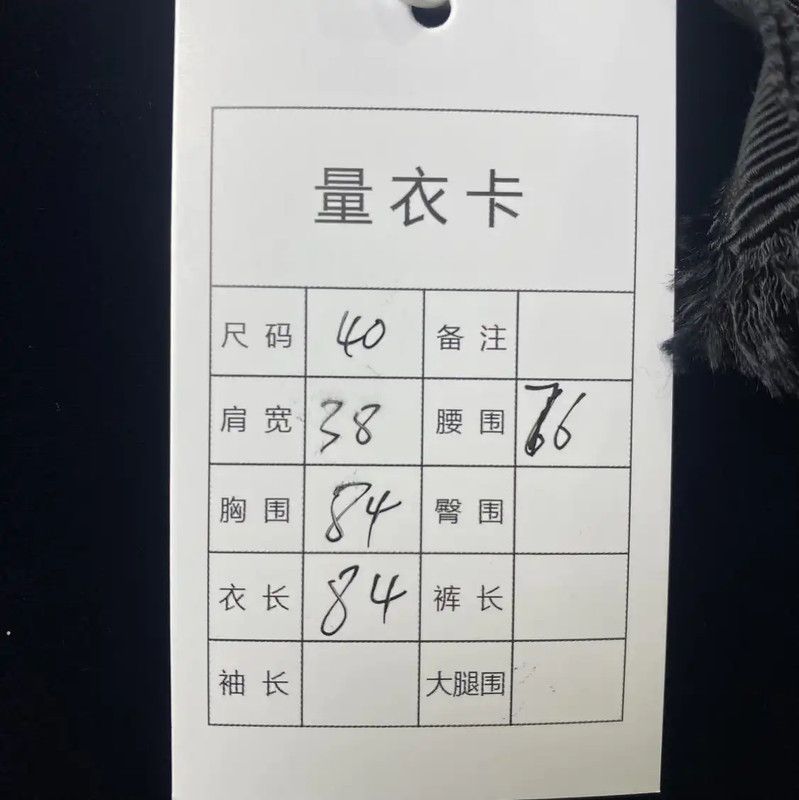 量衣卡
尺码 40 备注
肩宽 38 腰围 76
胸围 84 臀围
衣长 84 裤长
袖长 大腿围